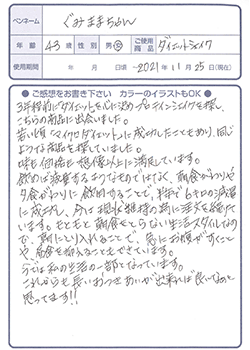 ペンネーム ぐみままちょん
年齢 43歳 性別 男・女 ご使用商品 ダイエットシェイク
使用期間 年 月 日頃 ~ 2021年11月25日(現在)
●ご感想をお書き下さい カラーのイラストもOK●
3年程前にダイエットを心に決めプロテインシェイクを探し、
こちらの商品に出会いました。
若い頃マイクロダイエットに成功したこともあり、同じ
ような商品を探していました。
味も価格も想像以上に満足しています。
飲めば減量するようなものではなく、朝食がわりや
夕食がわりに飲用することで、半年で6キロの減量
に成功し、今は現状維持の為に注文を続け
ています。もともと朝食をとらない生活スタイルなの
で、朝にとり入れることで、急にお腹がすくこと
や、間食を抑えることもできています。
今では私の生活の一部となっています。
これからも長いおつきあいが出来れば良いなぁと
思ってます!!